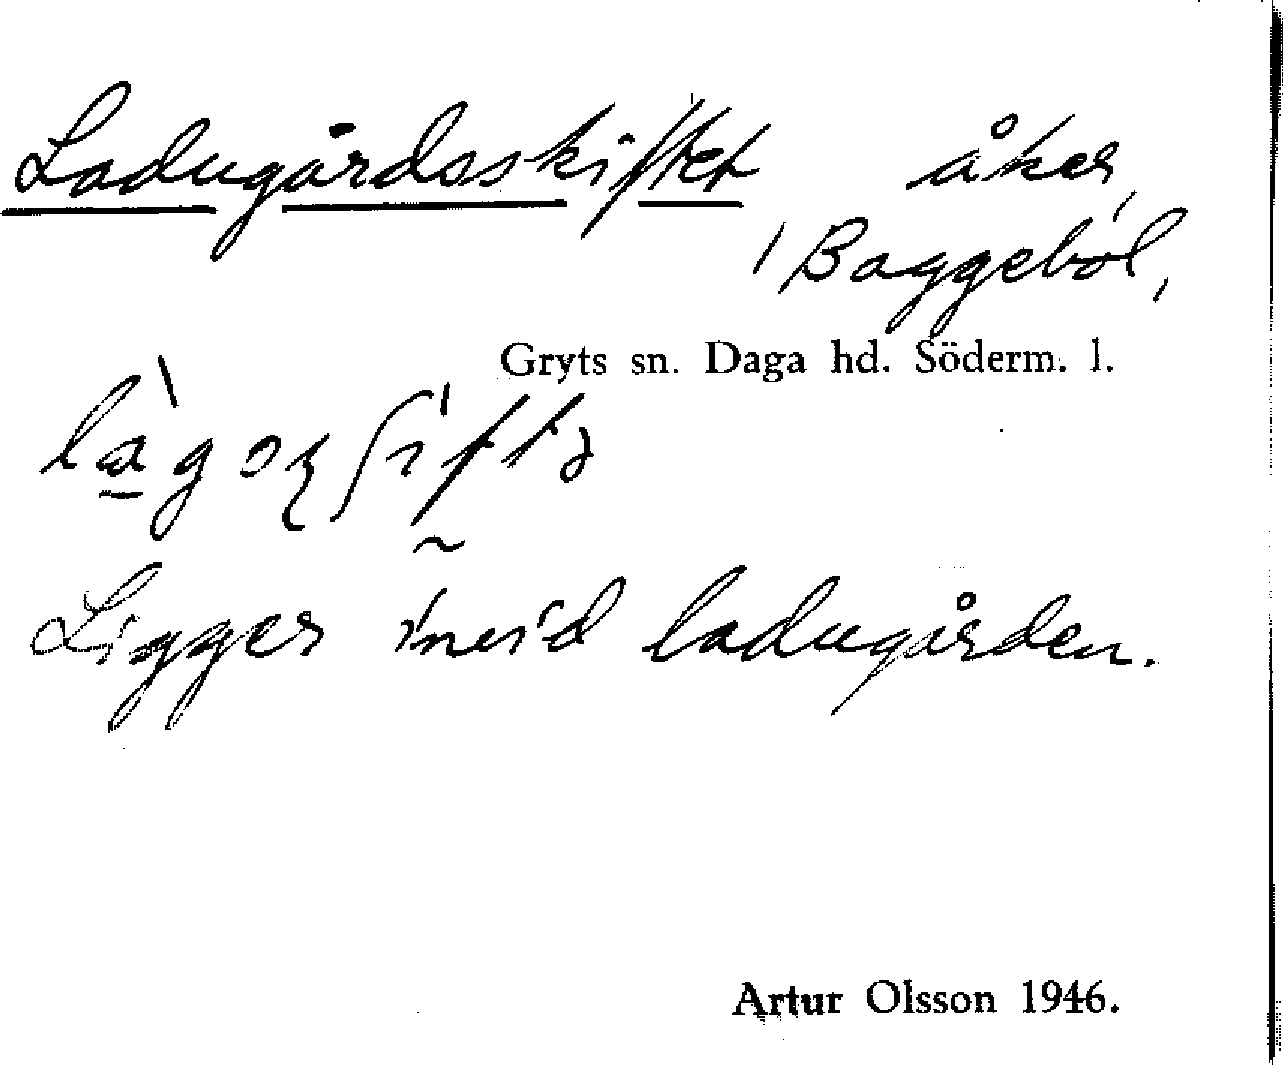 Ladugårdsskiftet åker,
Baggeböl,
Gryts sn. Daga hd. Söderm. l.
Ligger invid ladugården.
Artur Olsson 1946.